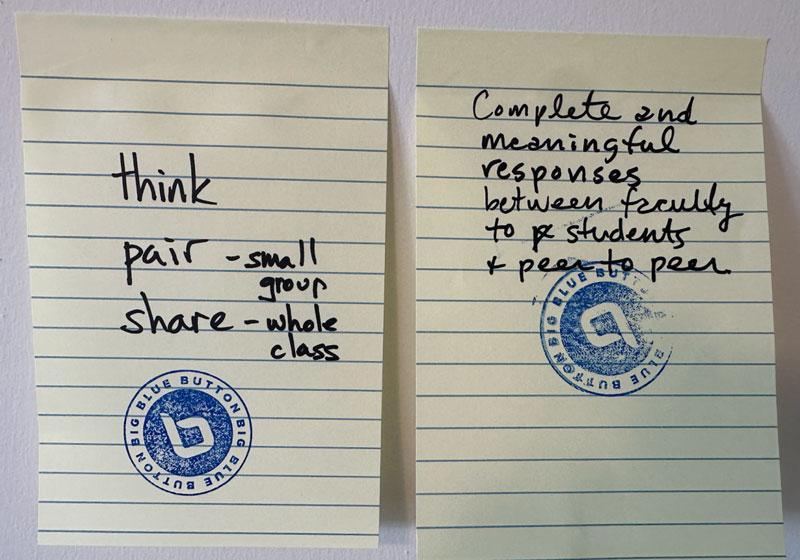 think
pair - small
group
share - whole
class
BIG BLUE BUTTON BIG BLUE BUTTON
b
Complete and
meaningful
responses
between faculty
to students
+ peer to peer
BIG BLUE BUTTON BIG BLUE BUTTON
b